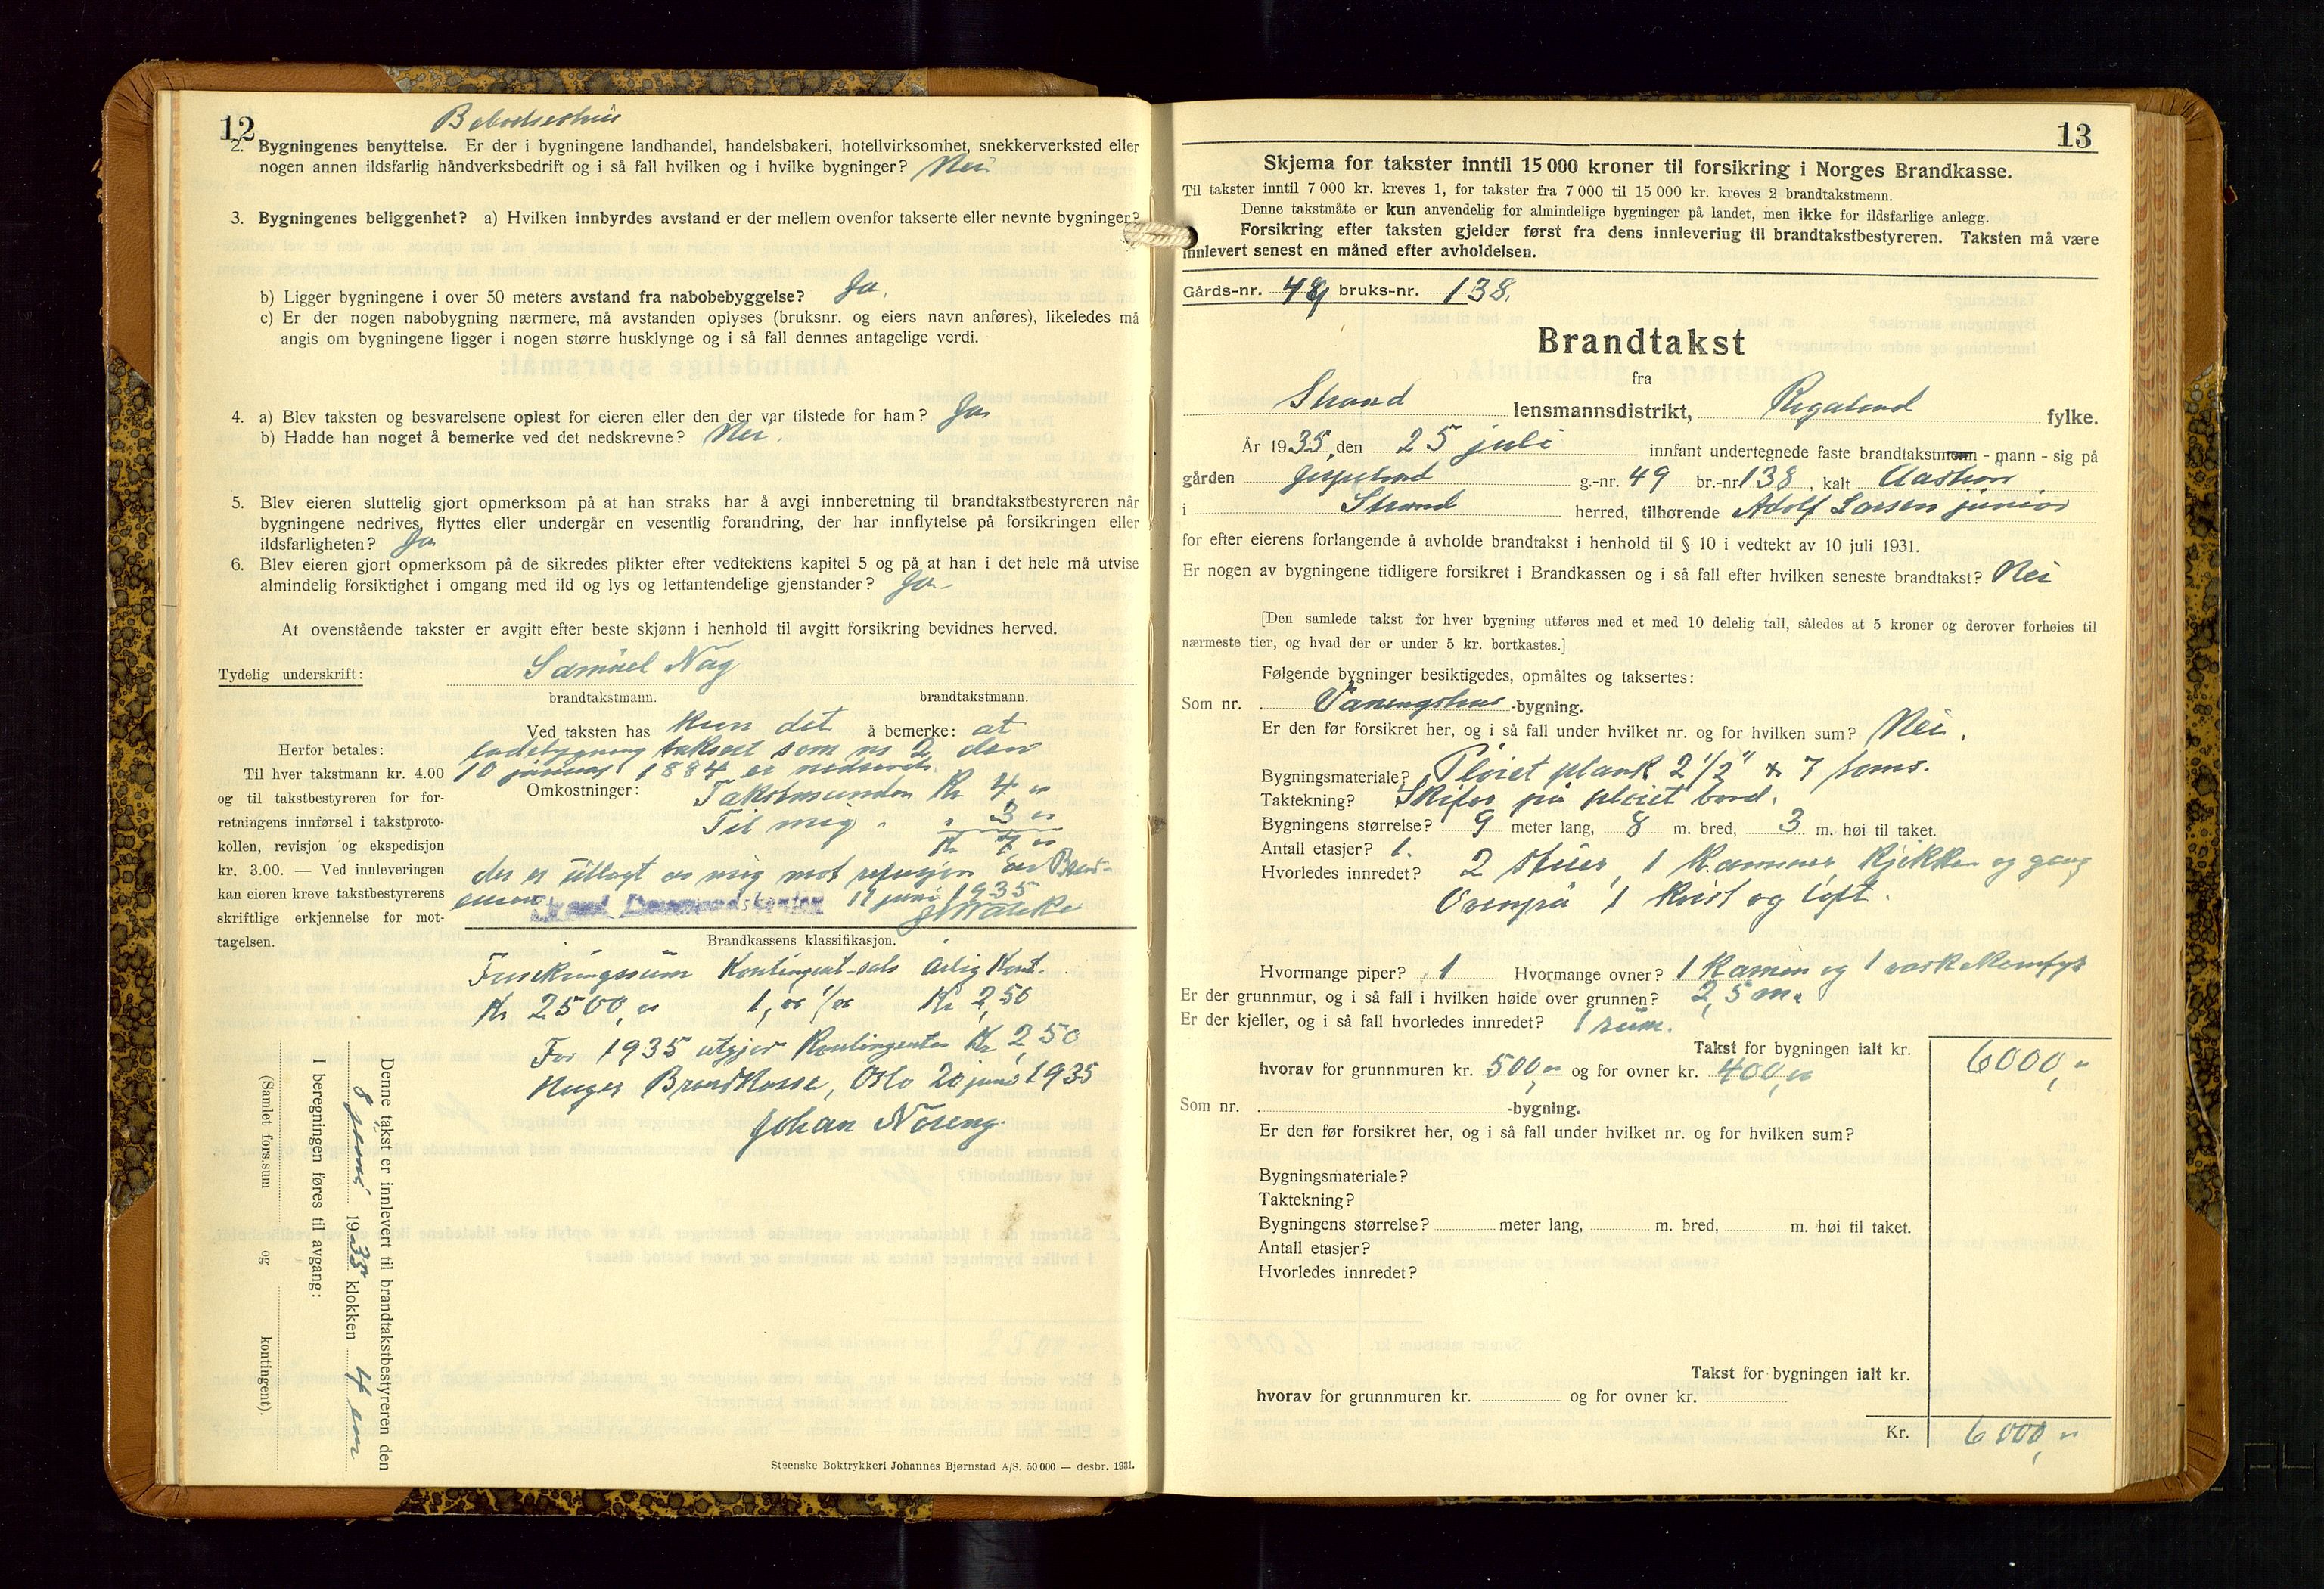 12
Beboelseshus
2. Bygningenes benyttelse. Er der i bygningene landhandel, handelsbakeri, hotellvirksomhet, snekkerverksted eller
nogen annen ildsfarlig håndverksbedrift og i så fall hvilken og i hvilke bygninger? Nei
3. Bygningenes beliggenhet? a) Hvilken innbyrdes avstand er der mellem ovenfor takserte eller nevnte bygninger?
b) Ligger bygningene i over 50 meters avstand fra nabobebyggelse? Ja.
c) Er der nogen nabobygning nærmere, må avstanden oplyses (bruksnr. og eiers navn anføres), likeledes må
angis om bygningene ligger i nogen større husklynge og i så fall dennes antagelige verdi.
4. a) Blev taksten og besvarelsene oplest for eieren eller den der var tilstede for ham? Ja
b) Hadde han noget å bemerke ved det nedskrevne? Nei.
5. Blev eieren sluttelig gjort opmerksom på at han straks har å avgi innberetning til brandtakstbestyreren når
bygningene nedrives, flyttes eller undergår en vesentlig forandring, der har innflytelse på forsikringen eller
ildsfarligheten? Ja
6. Blev eieren gjort opmerksom på de sikredes plikter efter vedtektens kapitel 5 og på at han i det hele må utvise
almindelig forsiktighet i omgang med ild og lys og lettantendelige gjenstander? Ja -
At ovenstående takster er avgitt efter beste skjønn i henhold til avgitt forsikring bevidnes herved.
Tydelig underskrift: Samuel Nag
brandtakstmann. brandtakstmann.
Ved taksten has kun det å bemerke: at
ladebygning taksert som nr 2 den
10 januar 1884 er nedrevet.
Omkostninger: Takstmannen Kr 4 00
Til mig " " 3 00
Kr 7 00
der er utlagt av mig mot refusjon av Brand-
Strand Lensmannskontor 11 juni 1935
Herfor betales:
Til hver takstmann kr. 4.00
og til takstbestyreren for for-
retningens innførsel i takstproto-
kollen, revisjon og ekspedisjon
kr. 3.00. — Ved innleveringen
kan eieren kreve takstbestyrerens
skriftlige erkjennelse for mot-
tagelsen.
Brandkassens klassifikasjon.
Forsikringssum Kontingent-sats Årlig Kont.
Kr 2500,00 1,00 ‰ Kr 2,50
For 1935 utgjør Kontingenten Kr 2,50
Norges Brandkasse, Oslo 20 juni 1935
Johan Nöseng.
Denne takst er innlevert til brandtakstbestyreren den
8 juni 1935 klokken 4 em
I beregningen føres til avgang:
(Samlet fors.sum og kontingent).
Steenske Boktrykkeri Johannes Bjørnstad A/S. 50 000 — desbr. 1931.
13
Skjema for takster inntil 15 000 kroner til forsikring i Norges Brandkasse.
Til takster inntil 7 000 kr. kreves 1, for takster fra 7 000 til 15 000 kr. kreves 2 brandtakstmenn.
Denne takstmåte er kun anvendelig for almindelige bygninger på landet, men ikke for ildsfarlige anlegg.
Forsikring efter taksten gjelder først fra dens innlevering til brandtakstbestyreren. Taksten må være
innlevert senest en måned efter avholdelsen.
Gårds-nr. 49 bruks-nr. 138.
Brandtakst
fra
Strand lensmannsdistrikt, Rogaland fylke.
År 1935, den 25 juli innfant undertegnede faste brandtakstmenn - mann - sig på
gården Jørpeland g.-nr. 49 br.-nr 138, kalt Aastun
i Strand herred, tilhørende Adolf Larsen junior
for efter eierens forlangende å avholde brandtakst i henhold til § 10 i vedtekt av 10 juli 1931.
Er nogen av bygningene tidligere forsikret i Brandkassen og i så fall efter hvilken seneste brandtakst? Nei
[Den samlede takst for hver bygning utføres med et med 10 delelig tall, således at 5 kroner og derover forhøies til
nærmeste tier, og hvad der er under 5 kr. bortkastes.]
Følgende bygninger besiktigedes, opmåltes og taksertes:
Som nr. Vaaningshus -bygning.
Er den før forsikret her, og i så fall under hvilket nr. og for hvilken sum? Nei.
Bygningsmateriale? Pløiet plank 2 1/2" x 7 toms.
Taktekning? Skifer på pløiet bord.
Bygningens størrelse? 9 meter lang, 8 m. bred, 3 m. høi til taket.
Antall etasjer? 1.
Hvorledes innredet? 2 stuer, 1 Kammer, Kjøkken og gang
Ovenpå 1 kvist og loft.
Hvormange piper? 1 Hvormange ovner? 1 Kamin og 1 vaskekomfyr
Er der grunnmur, og i så fall i hvilken høide over grunnen? 2,5 m.
Er der kjeller, og i så fall hvorledes innredet? 1 rum.
Takst for bygningen ialt kr. 6000,"
hvorav for grunnmuren kr. 500,00 og for ovner kr. 400,00
Som nr. -bygning.
Er den før forsikret her, og i så fall under hvilket nr. og for hvilken sum?
Bygningsmateriale?
Taktekning?
Bygningens størrelse? meter lang, m. bred, m. høi til taket.
Antall etasjer?
Hvorledes innredet?
Takst for bygningen ialt kr.
hvorav for grunnmuren kr. og for ovner kr.
Kr. 6000,"